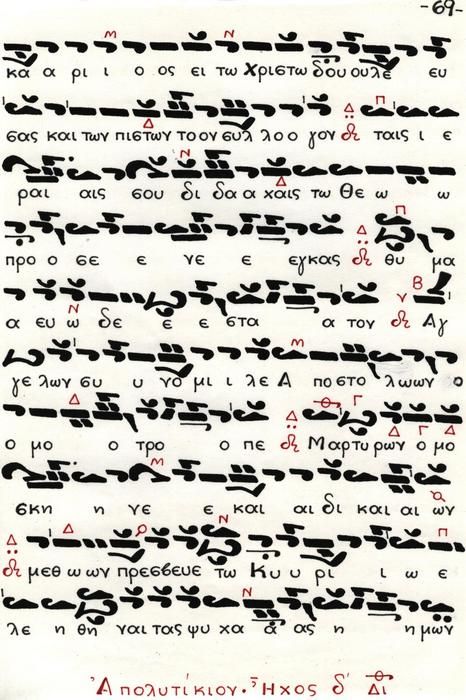 -69-
κα α ρι ι ο ος ει τω Χριστω δου ουλε ευ
σας και των πιστων το ον συλ λο ο γον δι ταις ι ε
ραι αις σου δι δα α χαις τω Θε ω ω
προ ο σε ε νε ε εγκας δι θυ μα
α ευ ω δε ε ε στα α τον δι Αγ
γε λων συ υ νο μι ι λε Α πο στο λωων ο
ο μο ο τρο ο πε δι Μαρτυ ρων ο μο
σκη η νε ε και αι δι και αι ων
δι μεθ ω ων πρεσβευε τω Κυ υ ρι ι ω ε
λε η θη ναι τας ψυ χα α ας η η μων
Ἀπολυτίκιον. Ἦχος δ' Δι